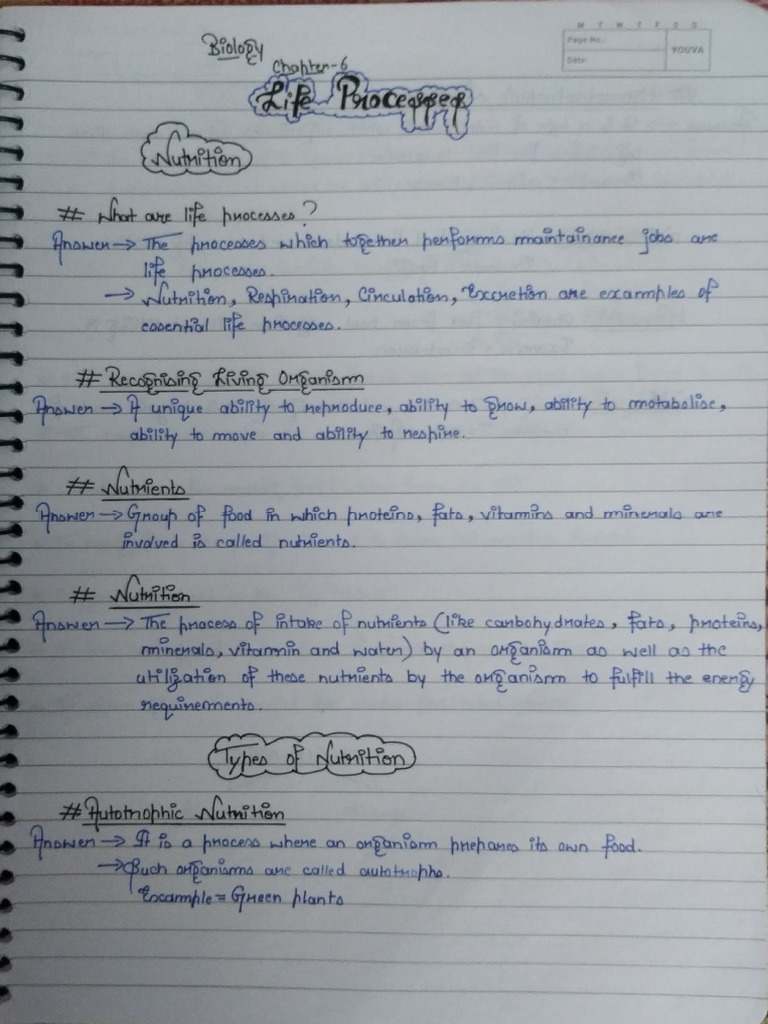 M T W T F S S
Page No.:
Date:
YOUVA
Biology
Chapter-6
Life Processes
Nutrition
# What are life processes?
Answer → The processes which together performs maintainance jobs are
life processes.
→ Nutrition, Respiration, Circulation, Excretion are examples of
essential life processes.
# Recognising Living Organism
Answer → A unique ability to reproduce, ability to grow, ability to metabolise,
ability to move and ability to respire.
# Nutrients
Answer → Group of food in which proteins, fats, vitamins and minerals are
involved is called nutrients.
# Nutrition
Answer → The process of intake of nutrients (like carbohydrates, fats, proteins,
minerals, vitammin and water) by an organism as well as the
utilization of these nutrients by the organism to fulfill the energy
requirements.
Types of Nutrition
# Autotrophic Nutrition
Answer → It is a process where an organism prepares its own food.
→ Such organisms are called autotrophs.
Example = Green plants